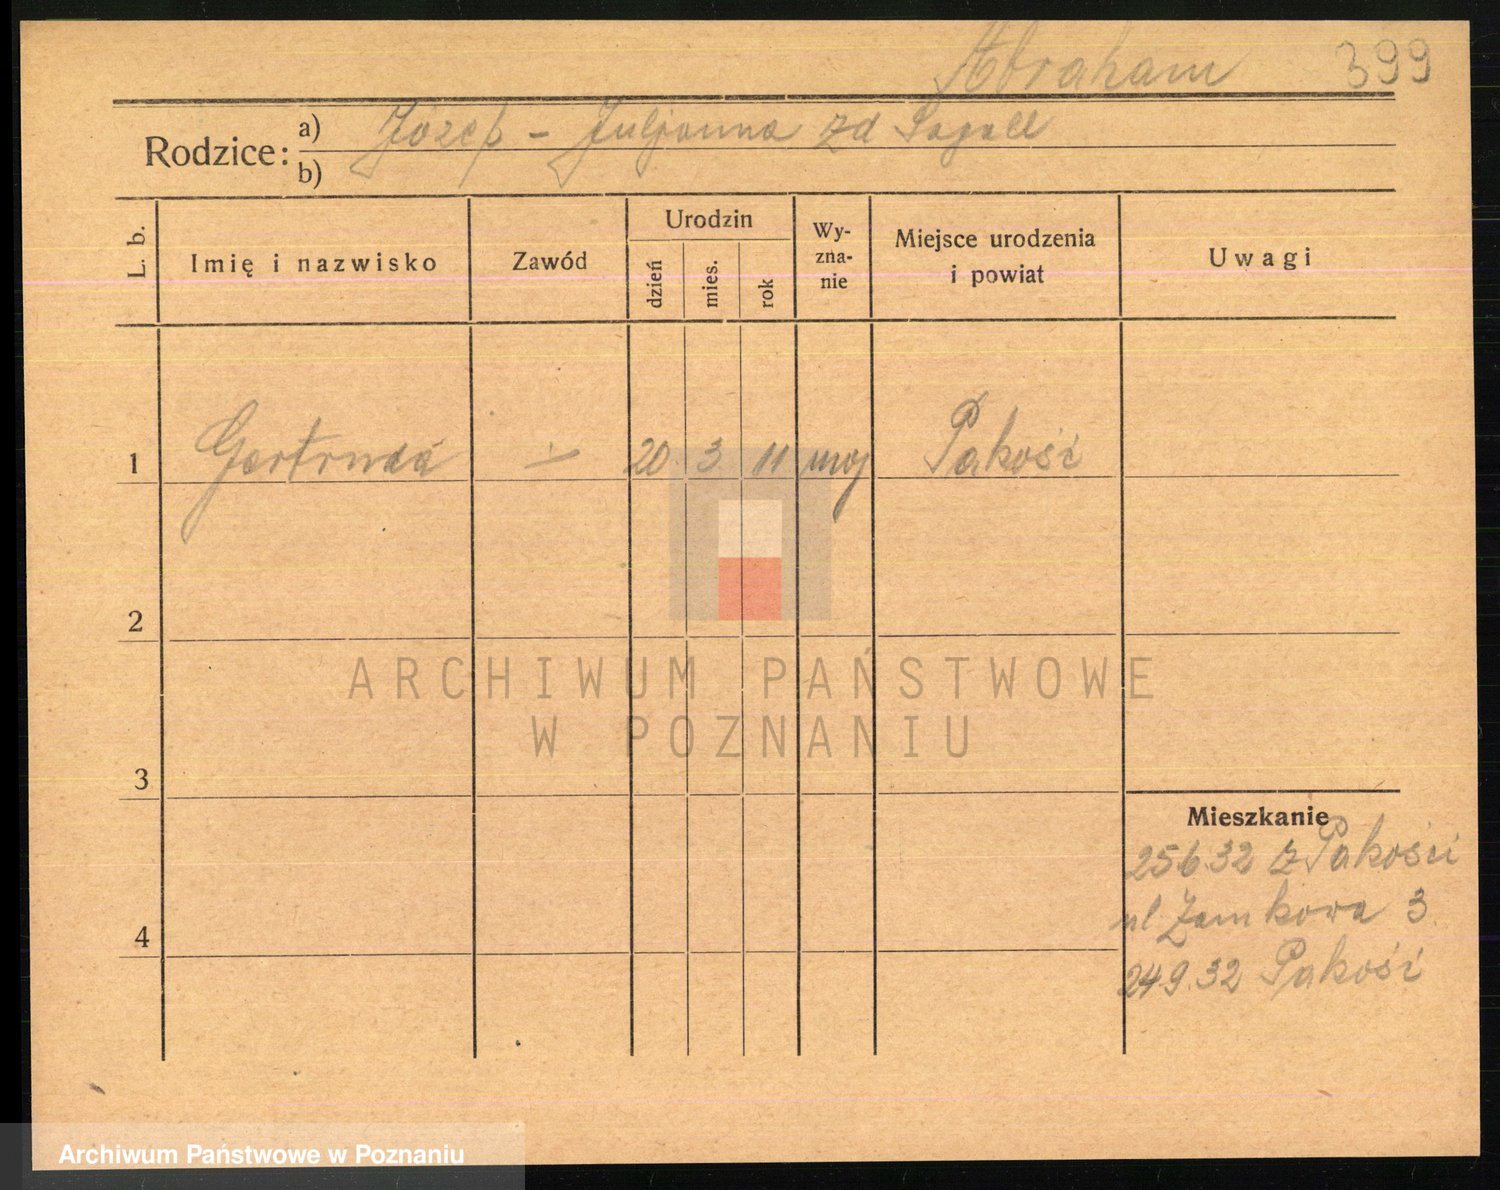 Abraham 399
Rodzice: a) Józef - Juljanna zd Sagall
b)
L. b. Imię i nazwisko Zawód Urodzin dzień mies. rok Wy-zna-nie Miejsce urodzenia i powiat Uwagi
1 Gertruda 20 3 11 moj Pakość
2
ARCHIWUM PAŃSTWOWE
W POZNANIU
3
Mieszkanie
25632 z Pakości
ul Zamkowa 3
4
249.32 Pakość
Archiwum Państwowe w Poznaniu